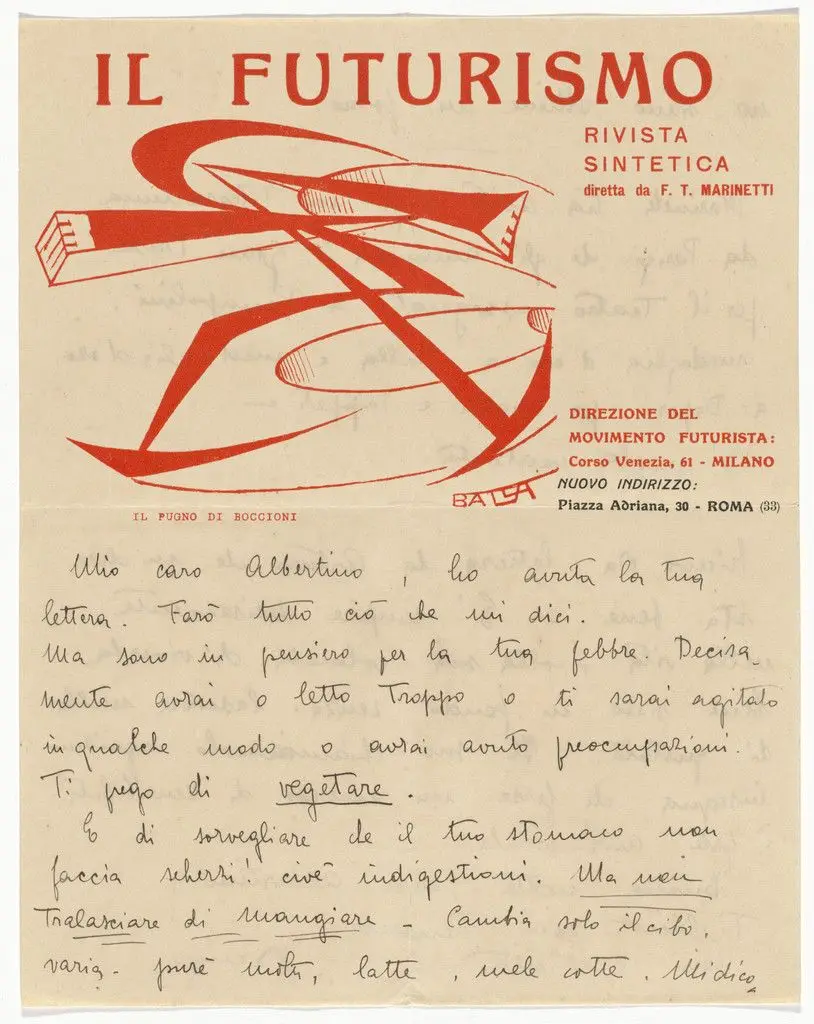 IL FUTURISMO
RIVISTA
SINTETICA
diretta da F. T. MARINETTI
DIREZIONE DEL
MOVIMENTO FUTURISTA:
Corso Venezia, 61 - MILANO
NUOVO INDIRIZZO:
Piazza Adriana, 30 - ROMA (33)
BALLA
IL PUGNO DI BOCCIONI
Mio caro Albertino, ho avuta la tua
lettera. Farò tutto ciò che mi dici.
Ma sono in pensiero per la tua febbre. Decisa-
mente avrai o letto Troppo o ti sarai agitato
in qualche modo o avrai avuto preoccupazioni.
Ti prego di vegetare.
E di sorvegliare che il tuo stomaco non
faccia scherzi! cioè indigestioni. Ma non
Tralasciare di mangiare - Cambia solo il cibo.
varia - purè molti, latte, mele cotte.